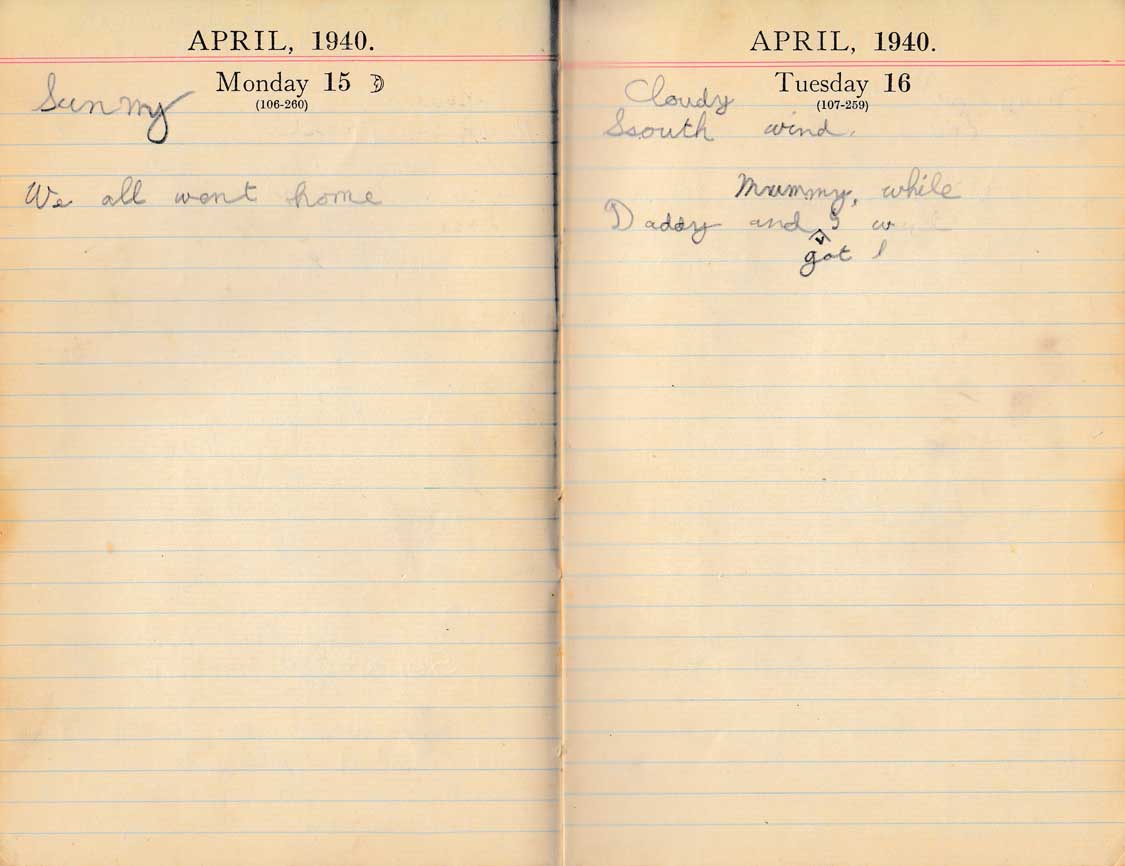 APRIL, 1940.
Monday 15
(106-260)
Sunny
We all went home
APRIL, 1940.
Tuesday 16
(107-259)
Cloudy
Ssouth wind.
Mummy, while
Daddy and I w
got